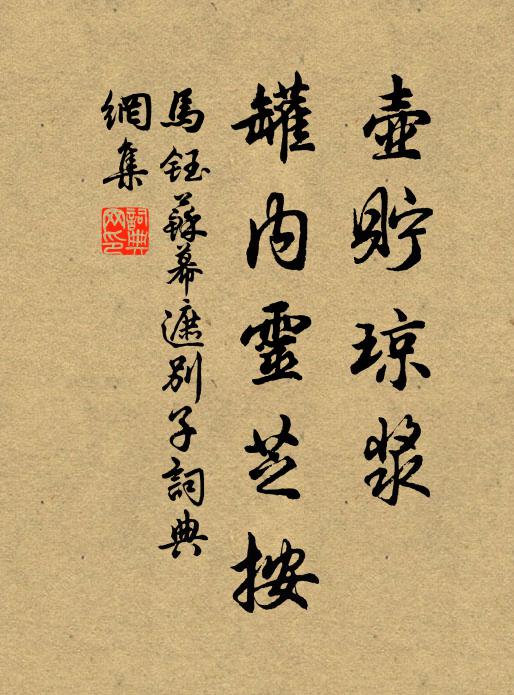 壺貯琼漿
罐内靈芝按
馬鈺蘇幕遮別子詞典
網集
詞典網印